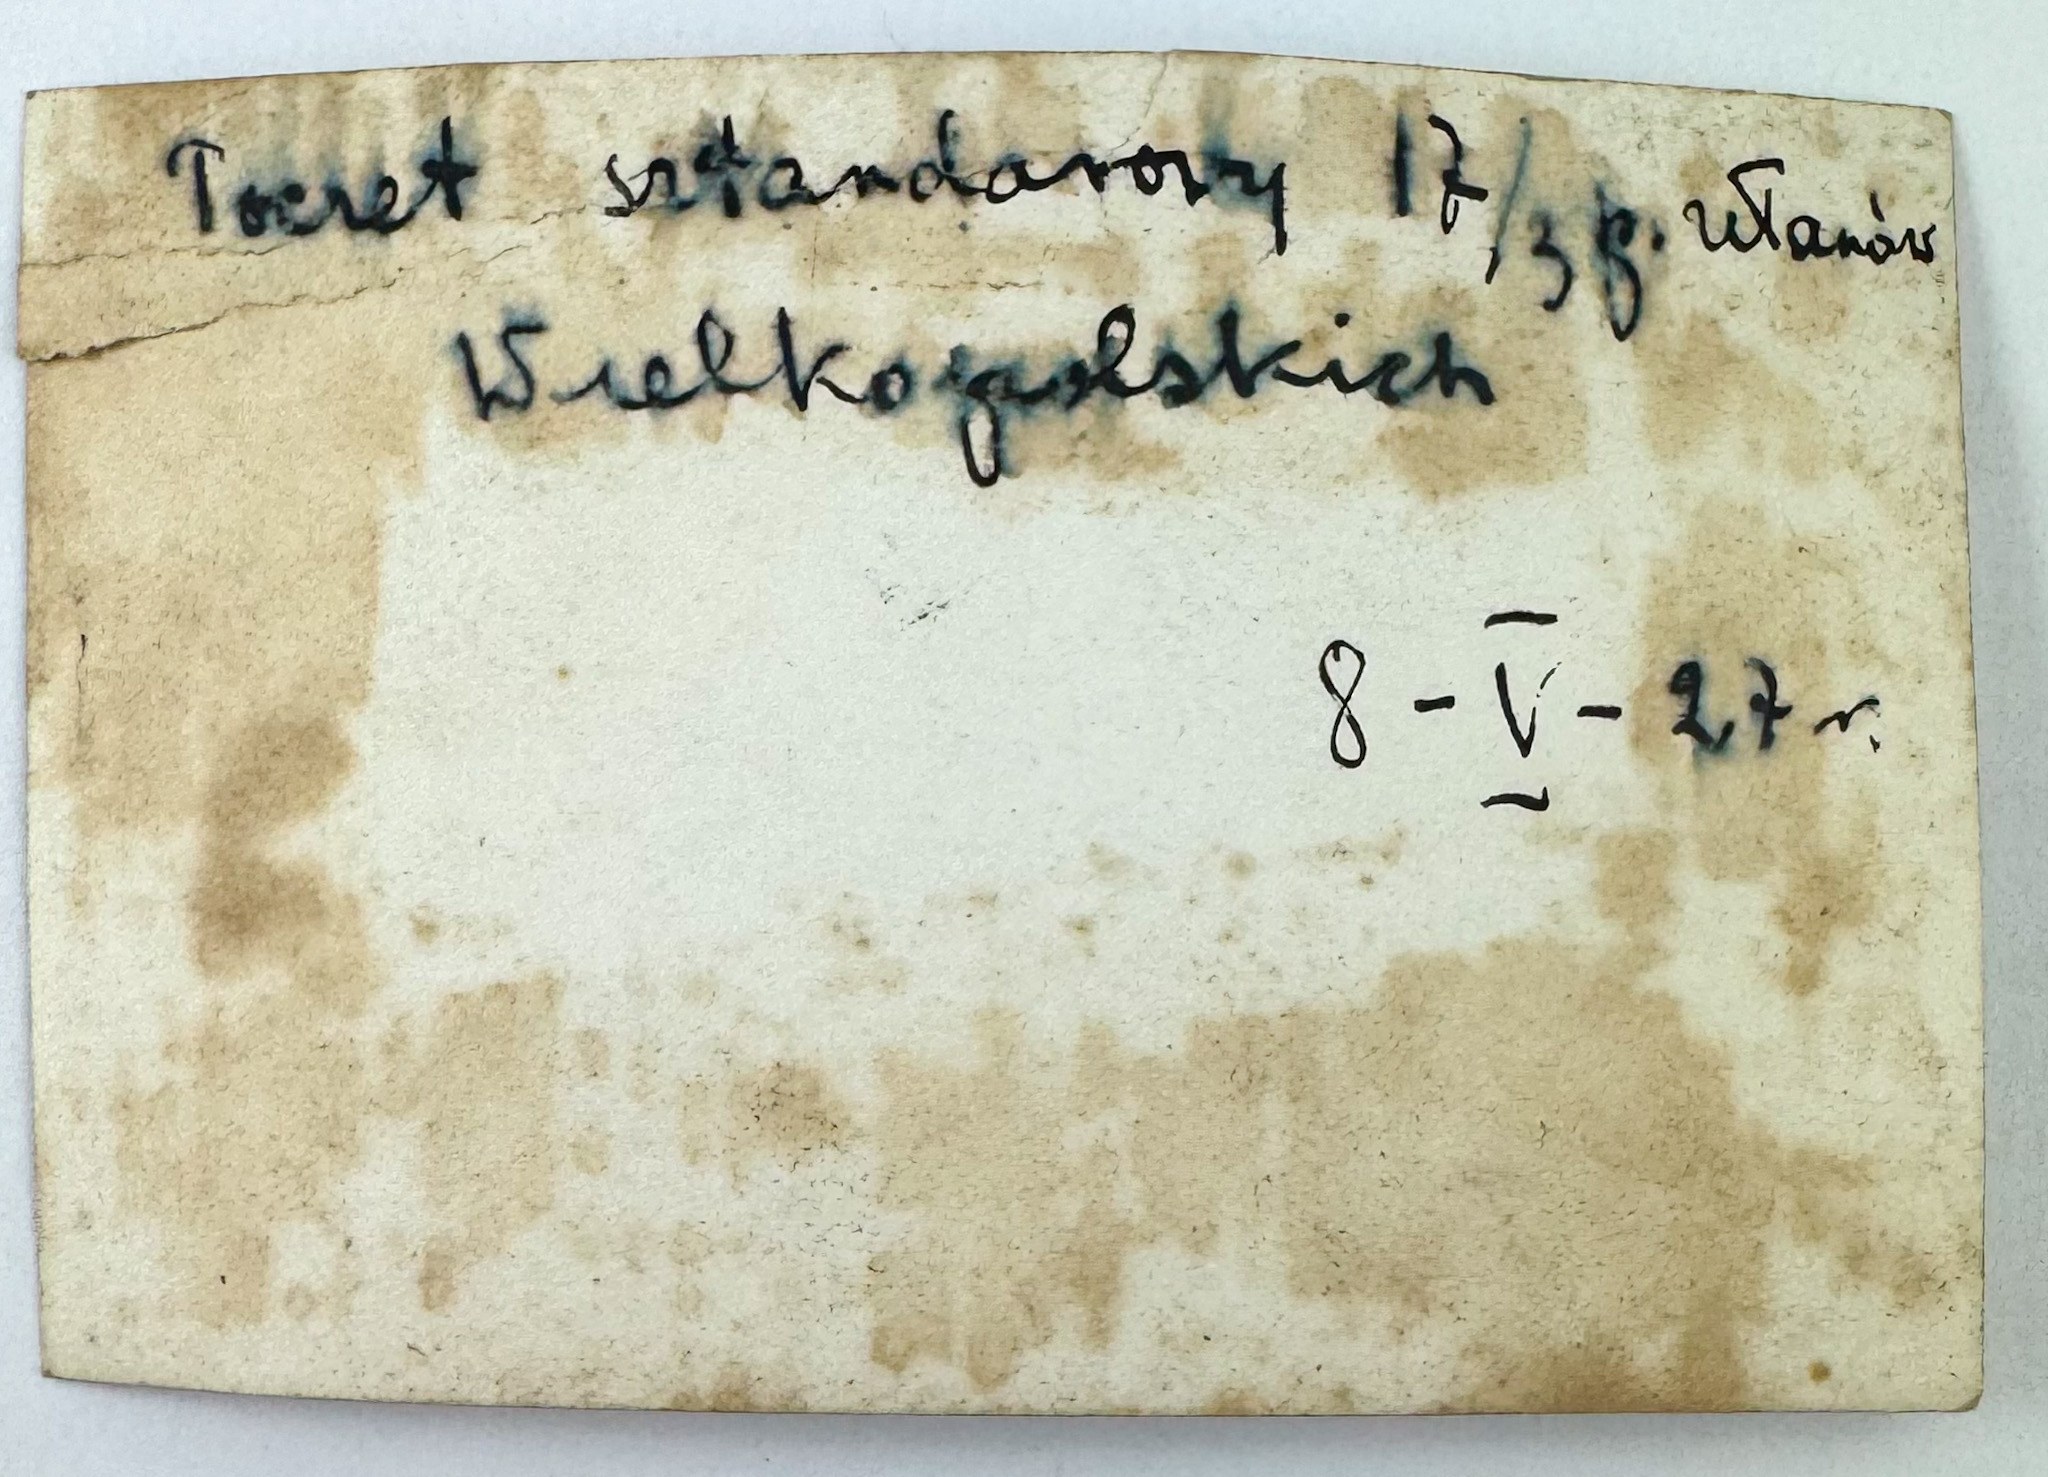 Poczet sztandarowy 17/3 p. Ułanów
Wielkopolskich
8 - V - 27 r.